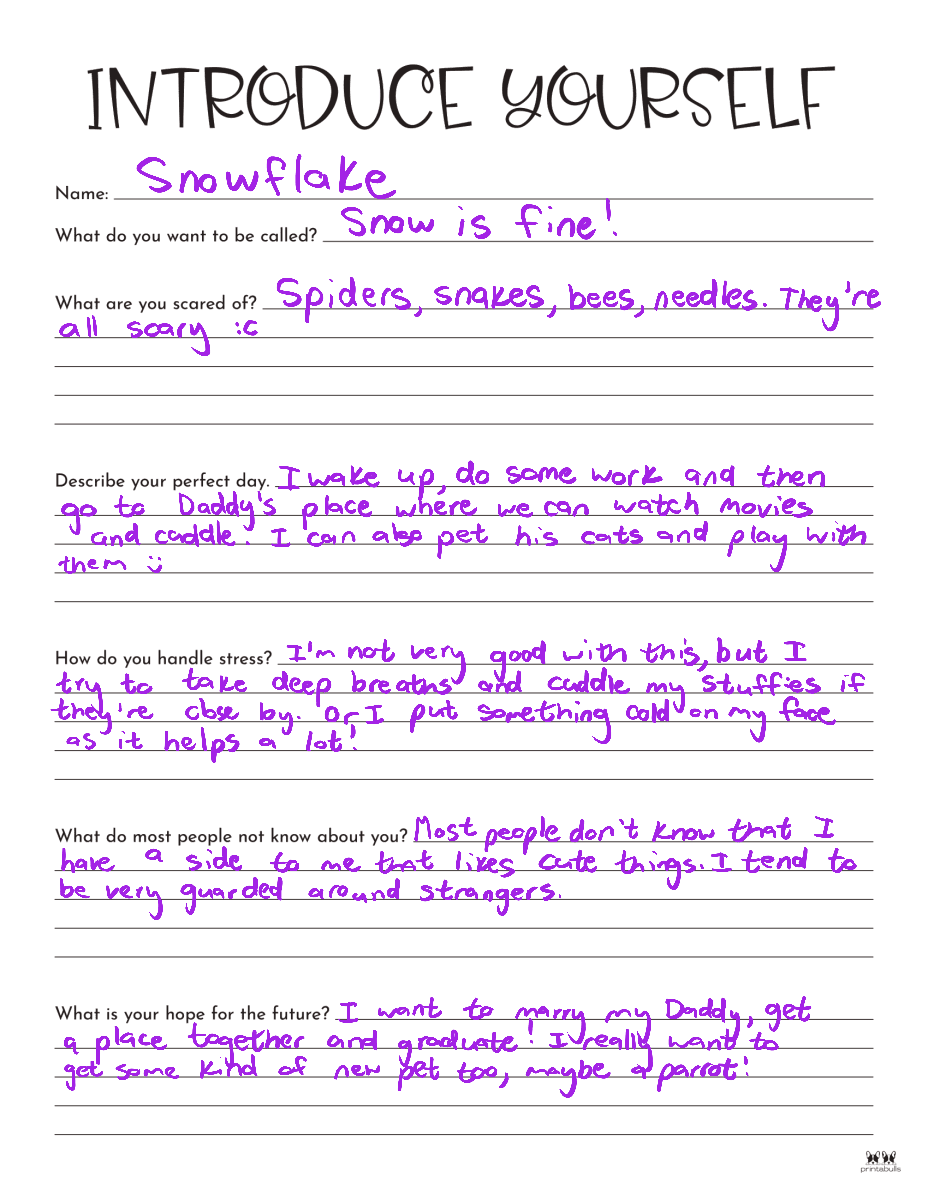 INTRODUCE YOURSELF
Name: Snowflake
What do you want to be called? Snow is fine!
What are you scared of? Spiders, snakes, bees, needles. They're
all scary :c
Describe your perfect day. I wake up, do some work and then
go to Daddy's place where we can watch movies
and cuddle. I can also pet his cats and play with
them :)
How do you handle stress? I'm not very good with this, but I
try to take deep breaths and cuddle my stuffies if
they're close by. Or I put something cold on my face
as it helps a lot!
What do most people not know about you? Most people don't know that I
have a side to me that likes cute things. I tend to
be very guarded around strangers.
What is your hope for the future? I want to marry my Daddy, get
a place together and graduate! I really want to
get some kind of new pet too, maybe a parrot!
printabulls